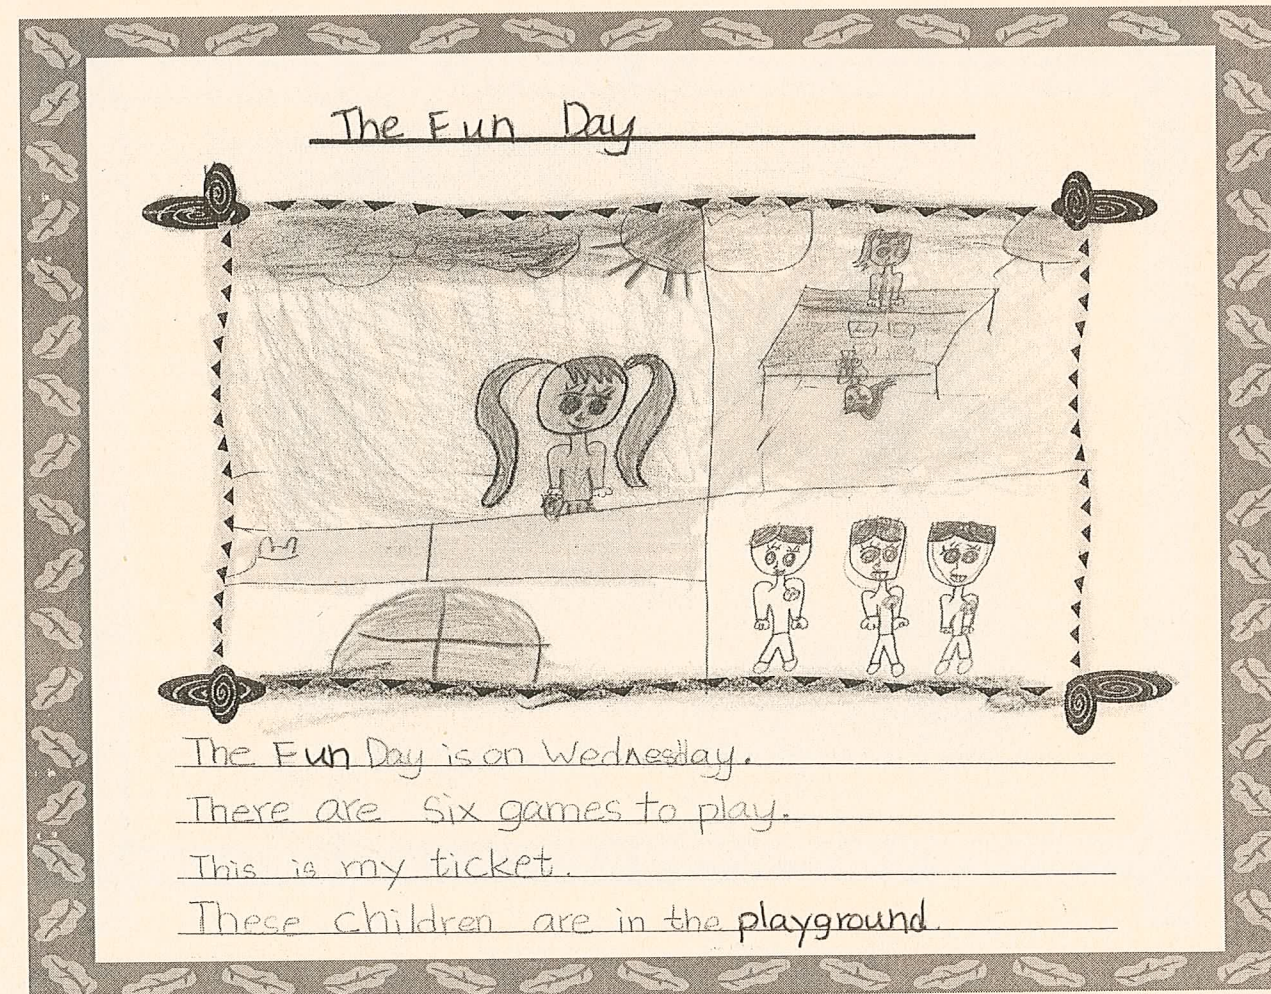 The Fun Day
The Fun Day is on Wednesday.
There are Six games to play.
This is my ticket.
These children are in the playground.